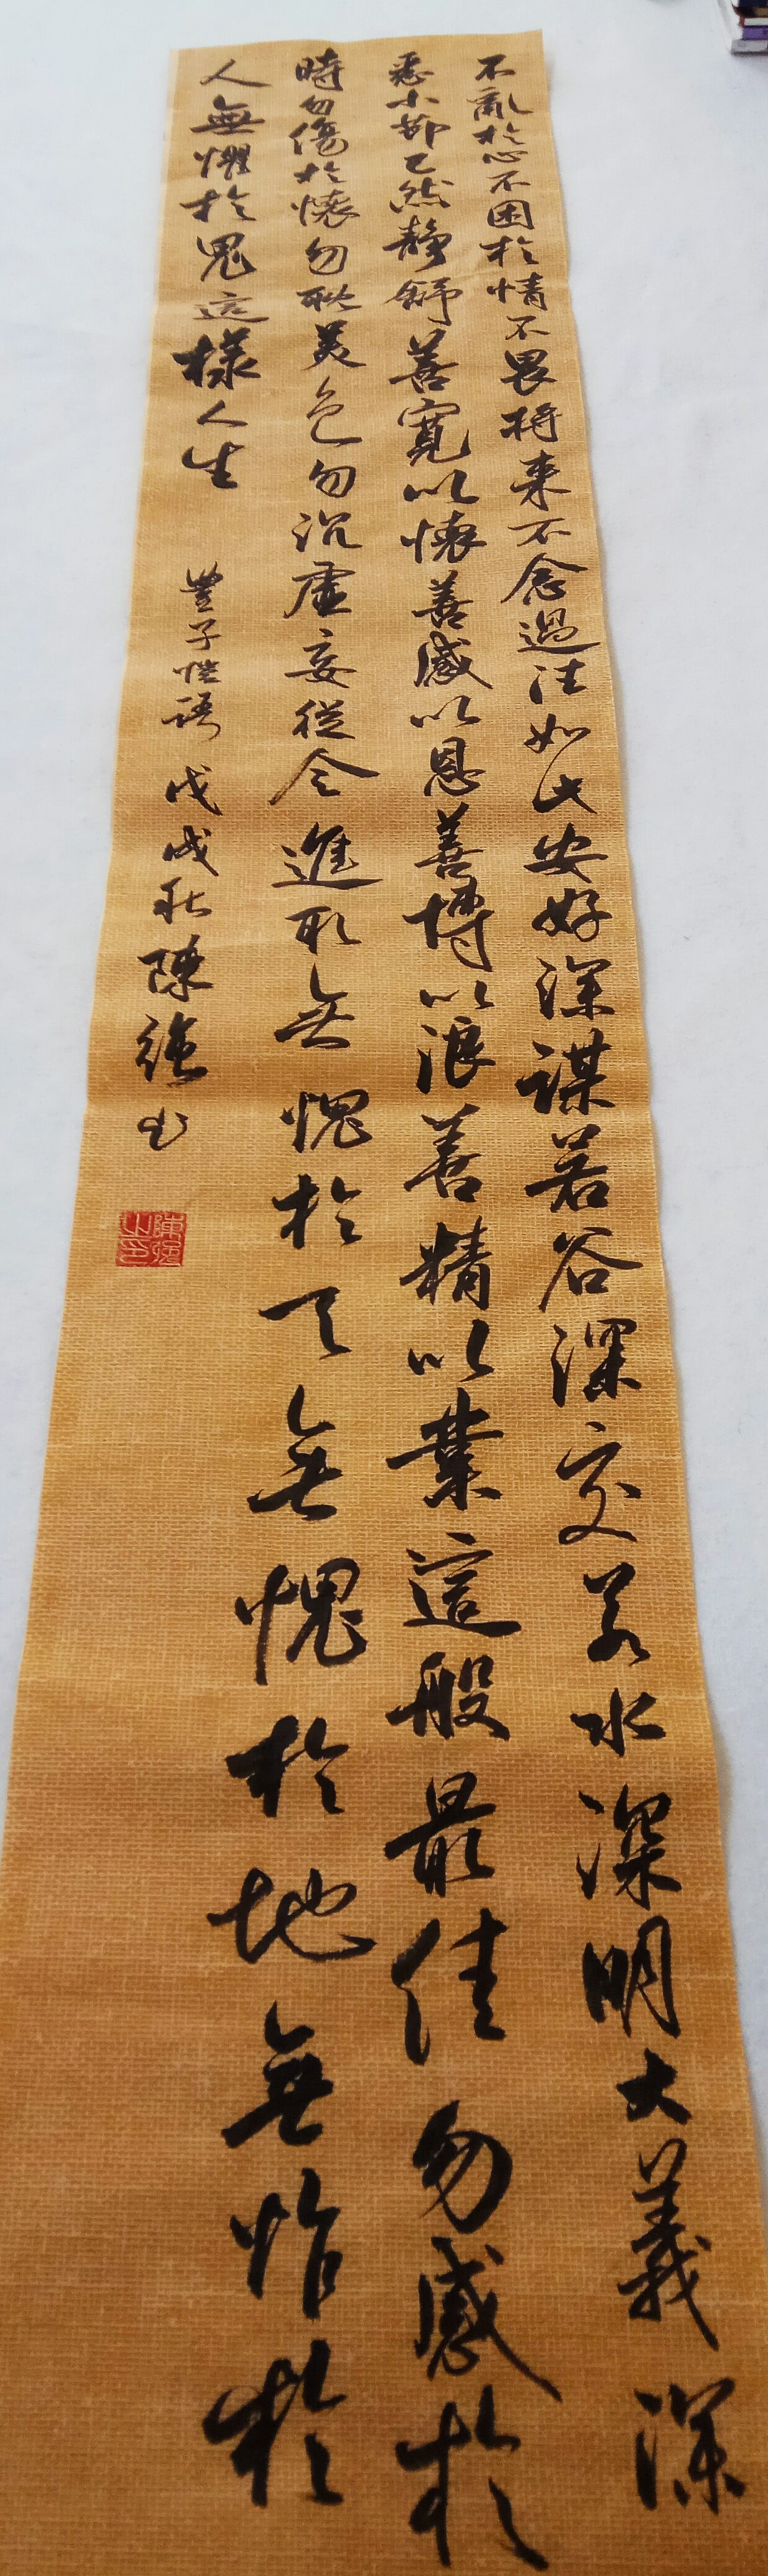 不亂於心不困於情不畏將来不念過往如此安好深謀若谷深交若水深明大義深
悉小節已然静舒善寬以懷善感以恩善博以浪善精以業這般最佳勿感於
時勿傷於懷勿耽美色勿沉虛妄從令進取無愧於天無愧於地無怍於
人無懼於鬼這樣人生
豐子愷語 戊戌秋 陳強書
陳強之印